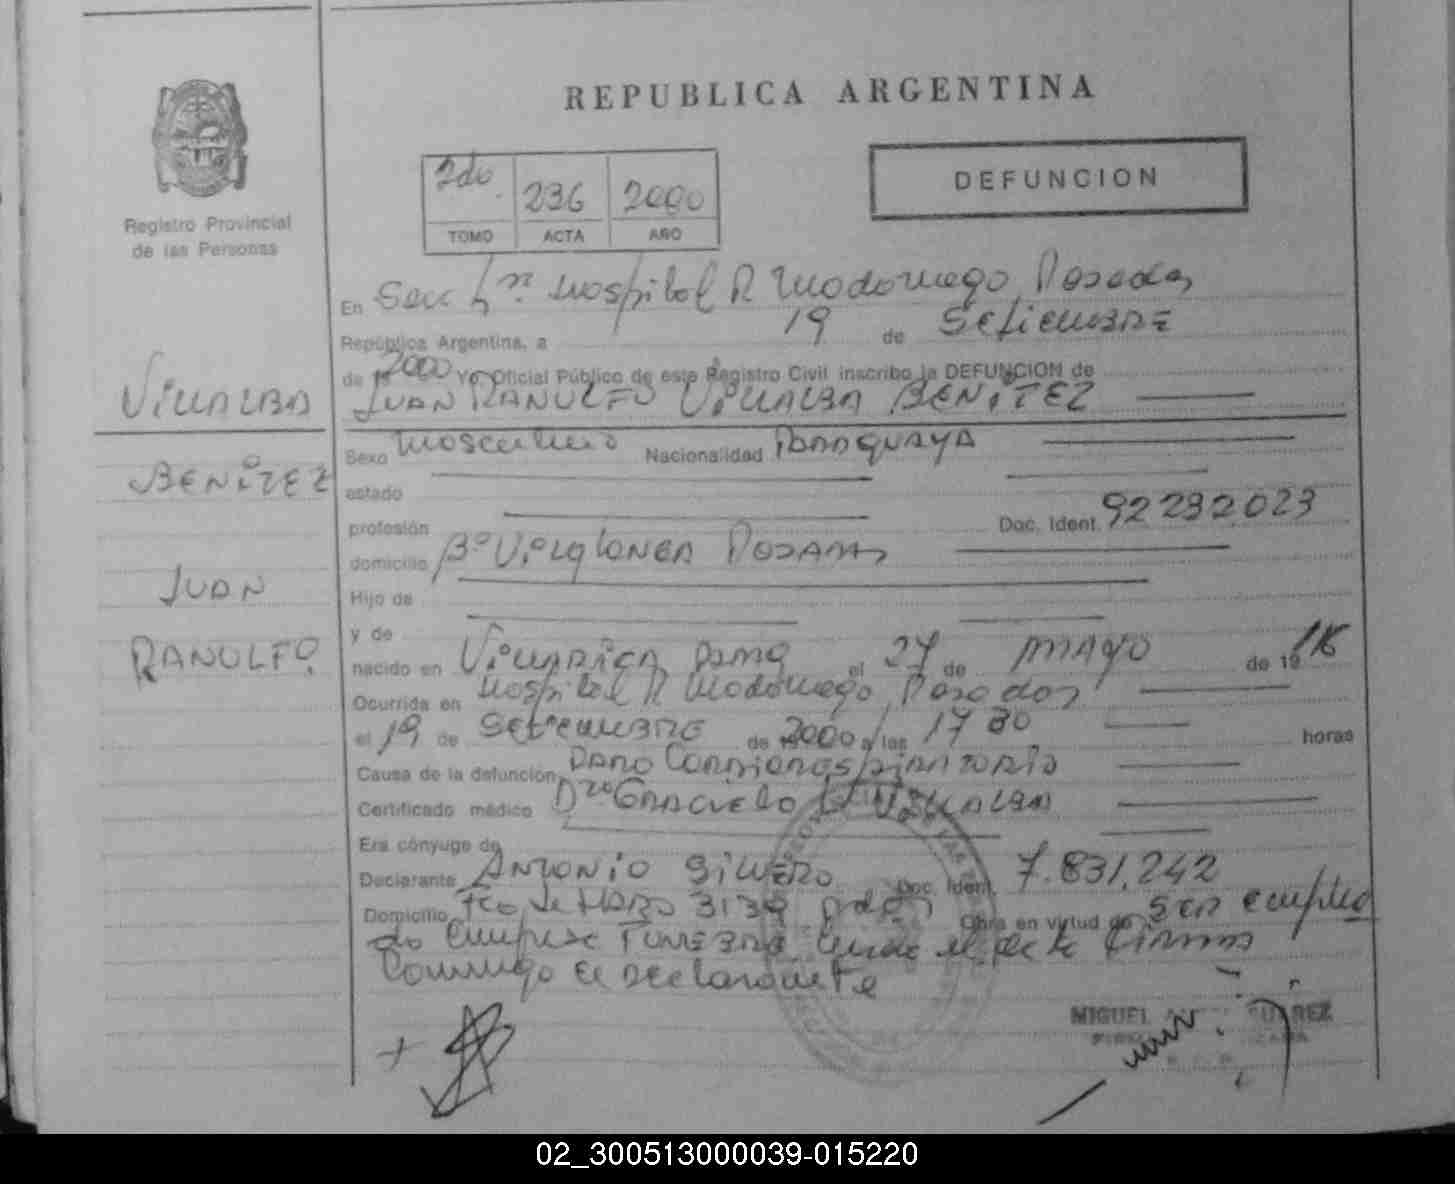 REPUBLICA ARGENTINA
DEFUNCION
2do. 236 2000
TOMO ACTA AÑO
Registro Provincial
de las Personas
En Secc Hospital R Madariaga Posadas
República Argentina, a 19 de Setiembre
de 19 2000 Yo, Oficial Público de este Registro Civil inscribo la DEFUNCION de
VILLALBA
JUAN RANULFO VILLALBA BENÍTEZ
BENÍTEZ
JUAN
RANULFO
Sexo masculino Nacionalidad PARAGUAYA
estado
profesión Doc. Ident. 92232023
domicilio Bº POSADAS
Hijo de
y de
nacido en VILLARICA PARAG el 27 de MAYO de 19
Ocurrida en Hospital R Madariaga Posadas
el 19 de SETIEMBRE de 2000 a las 17 30 horas
Causa de la defunción PARO CARDIORESPIRATORIO
Certificado médico VILLALBA
Era cónyuge de
Declarante ANTONIO SILVERO Doc. Ident. 7.831.242
Domicilio Fco de HARO 3139 Pdas Obra en virtud de SER emplea
do Empresa FUNEBRE Leida el acta FIRMA
Conmigo el Declarante
MIGUEL SUAREZ
02_300513000039-015220